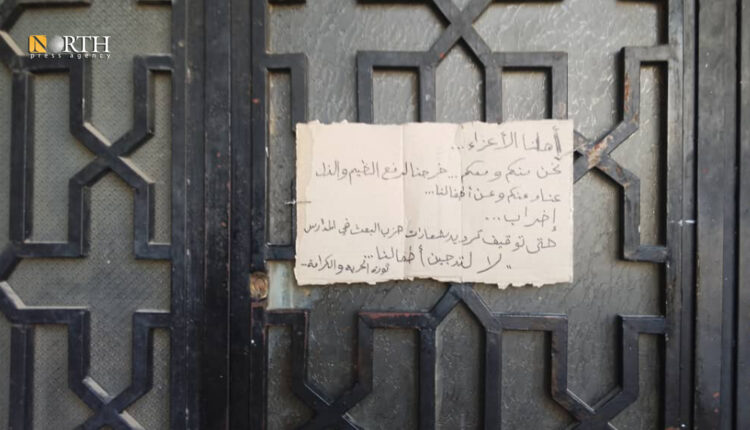 NORTH
press agency
أهلنا الأعزاء...
نحن منكم ومعكم... خرجنا لرفع الظيم والذل
عنا وعنكم وعن أطفالنا...
إضراب...
حتى توقيف ترديد شعارات حزب البعث في المدارس
لا لتدجين أطفالنا...
ثورة الحرية والكرامة..